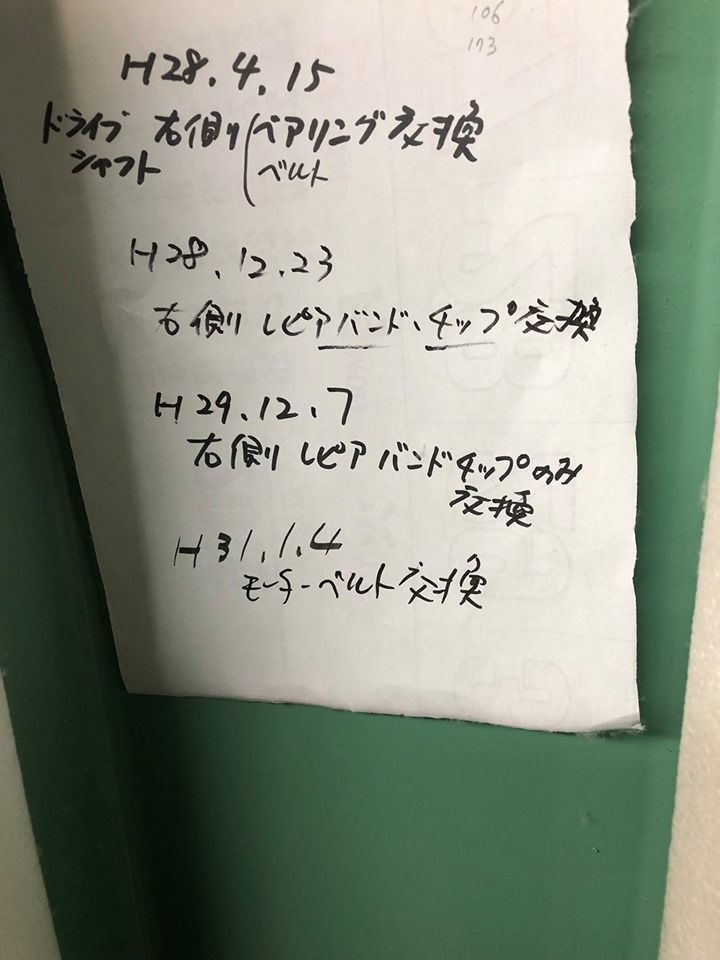 106
173
H28.4.15
ドライブ 右側 ベアリング 交換
シャフト ベルト
H28.12.23
右側 レピアバンド、チップ 交換
H29.12.7
右側 レピア バンドチップのみ
交換
H31.1.4
モーターベルト交換